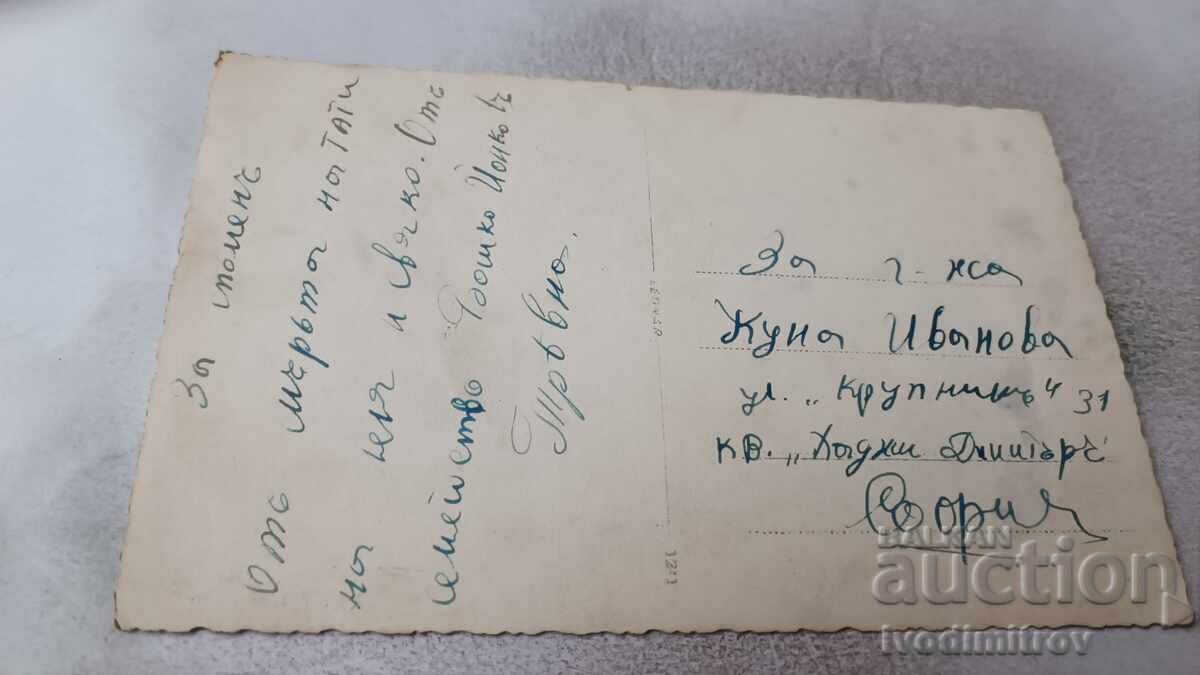 За споменъ
Отъ мъртта на тати
на леля и свако. Отъ
семейство Бошко Йонковъ
Трѣвна.
За г-жа
Куна Иванова
ул. „Крупникъ" 31
кв. „Хаджи Димитъръ
София
3213
BALKAN
auction
ivodimitrov